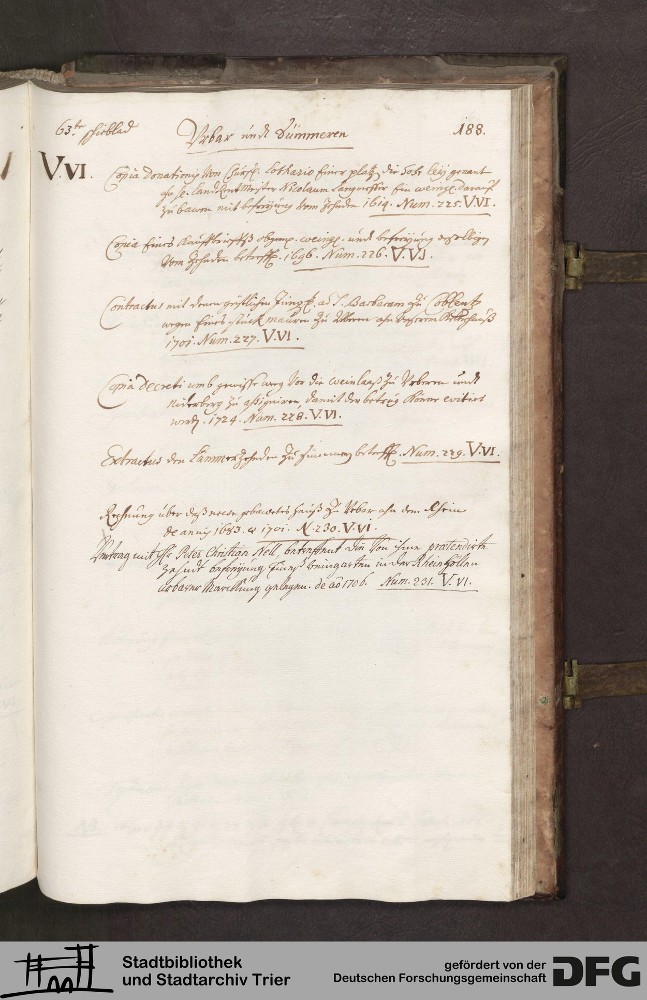 63te schieblad Urbar undt Simmeren 188.
V.VI. Copia Donationis von Churf. Lothario Einer platz, die genant
ahn Landtrentmeister Nicolaum Ein weing. darauf
zu bauen mit befreyung vom zehnden 1614. Num. 225. V.VI.
Copia Eines Kauffbrieffs weing. undt befreyung desselbigen
vom zehnden betreff. 1696. Num. 226. V.VI.
Contractus mit denen geistlichen Jungf. ad S. Barbaram zu Coblentz
wegen Eines stück mauren zu Urbaren ahn
1701. Num. 227. V.VI.
Copia Decreti umb gewisse weg vor die weinlaaß zu Urberen undt
Niderberg zu assigniren, damit der betrug könne evitirt
werden. 1724. Num. 228. V.VI.
Extractus den zehnden zu Simmeren betreff. Num. 229. V.VI.
Rechnung über daß newe gebawetes hauß zu Urbar ahn dem Rhein
de annis 1683. & 1701. N. 230. V.VI.
Vertrag mit Hr. Peter Christian Nell, betreffent die von ihme prætendirte
zehndt befreyung Eines weingarten in der Rheinhellen
Urbarer Marckung gelegen. de aõ 1706. Num. 231. V.VI.
Stadtbibliothek
und Stadtarchiv Trier
gefördert von der
Deutschen Forschungsgemeinschaft
DFG